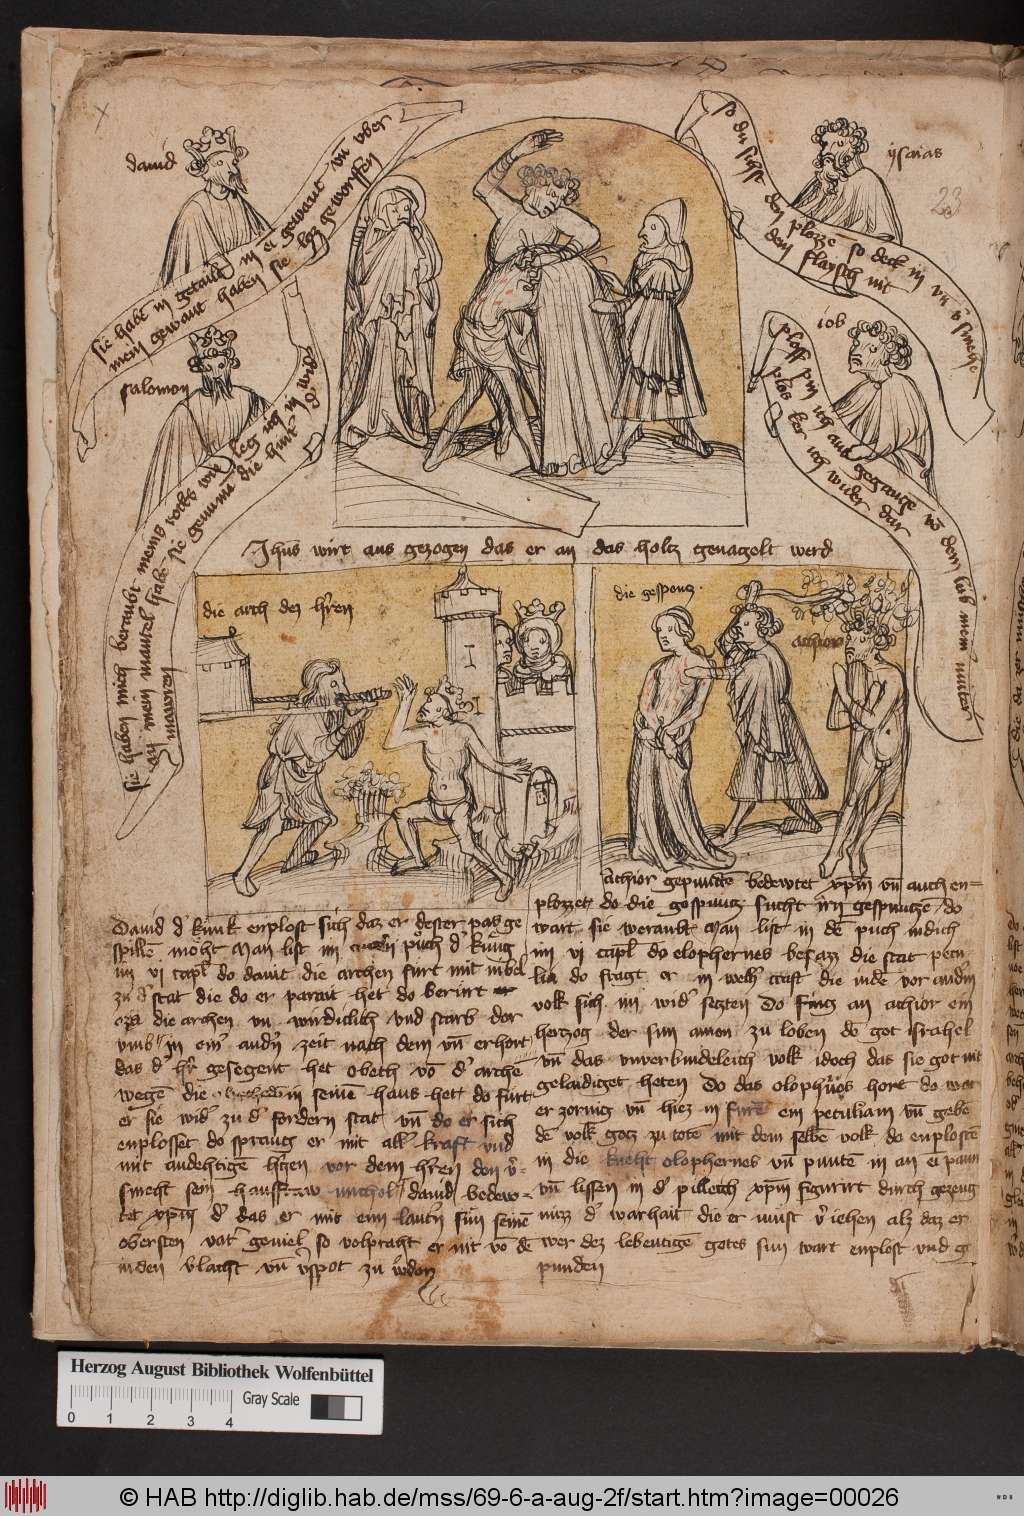 dauid
sie habt in getailt in ei gewant vn vber
mein gewant haben sie loz geworffen
ysaias
23
so du sichst den plozze so deck in vn v̓smehe
dein flaysch nit
salomon
sie haben mich beraubt meins rocks wie leg ich in
mein mantel hab sie genume die hint d̓
mawren
iob
plosz pin ich aus gegange vō dem lieb mein mutter
plos ker ich wider dar
Jhus wirt aus gezogen das er an das holtz genagelt werd
die arch dez h̓ren
die gespons
achior
Dauid d̓ kunk enplost sich daz er dester pas ge
spilē moht Man list im puch d̓ kung
im vi capl̓ do dauit die archen furt mit iubel
zu d̓ stat die do er parait het do berirt
oza die archen vn̄ wirdiclich vnd starb dor
vmb in ein̓ and̓n zeit nach dem vn̄ erhort
das d̓ h̓r gesegent het obeth vō d̓ archē
wegē die in seinē haus het do furt
er sie wid̓ zu d̓ fordern stat vn̄ do er sich
enplosset do sprang er mit all̓ kraft vnd
mit andehtigē h̓tzen vor dem h̓ren den v̓
smeht sein hausfraw michol dauid bedew=
tet xp̄m d̓ das er mit eim laut̓n sun seinē
obersten vat̓ geuiel so volpracht er nit vō dē
iuden vlacht vn̄ v̓spot zu w̓den
Achior gepundē bedewtet xp̄m vn̄ auch en=
plozzet do die gespuntz sucht irn gespuntze do
wart sie beraubt Man list in dē puch iudich
im vi capl̓ do olophernes besazz die stat petu
lia do fragt er in welh̓ craft die iude vor and̓m
volk sich im wid̓ setzten Do fing an achior ein
hertzog der sun amon zu loben dē got israhel
vn̄ das vnverbindeleich volk idoch das sie got nit
gelaidiget heten Do das oloph̓nes hort do wart
er zornig vn̄ hiez in furē ein petuliam vn̄ gebē
dē volk gotz zu totē mit dem selbē volk do enplostē
in die kneht olophernes vn̄ puntē in an ei paum
vn̄ lissen in d̓ pilleich xp̄m figurirt durch gezeug
nizz d̓ warhait die er must v̓iehen alz daz er
wer dez lebentigē gotes sun wart enplost vnd ge
punden
Herzog August Bibliothek Wolfenbüttel
0 1 2 3 4
Gray Scale
© HAB http://diglib.hab.de/mss/69-6-a-aug-2f/start.htm?image=00026